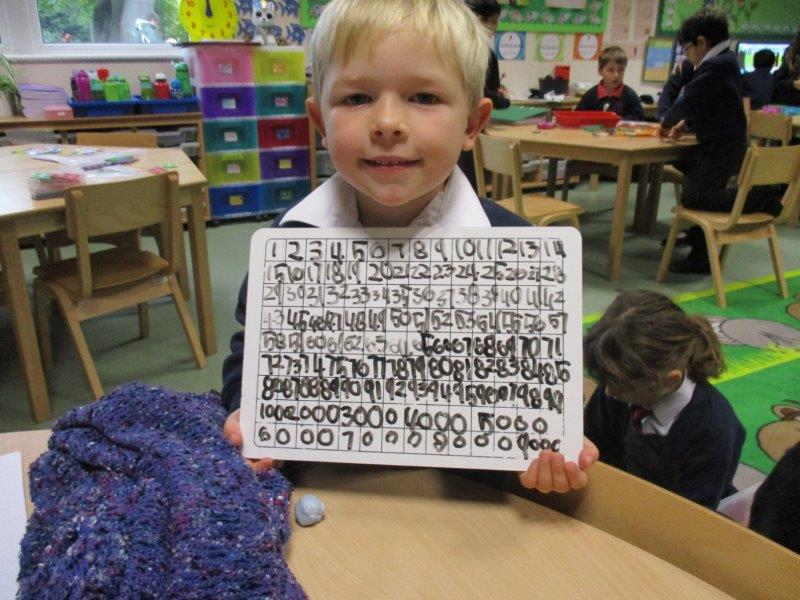 1 2 3 4 5 6 7 8 9 10 11 12 13 14
15 16 17 18 19 20 21 22 23 24 25 26 27 28
29 30 31 32 33 34 35 36 37 38 39 40 41 42
43 45 46 47 48 49 50 51 52 53 54 55 56 57
58 59 60 61 62 63 66 67 68 69 70 71
72 73 74 75 76 77 78 79 80 81 82 83 84 85
86 87 88 89 90 91 92 93 94 95 96 97 98 99
1000 2000 3000 4000 5000
6000 7000 8000 9000